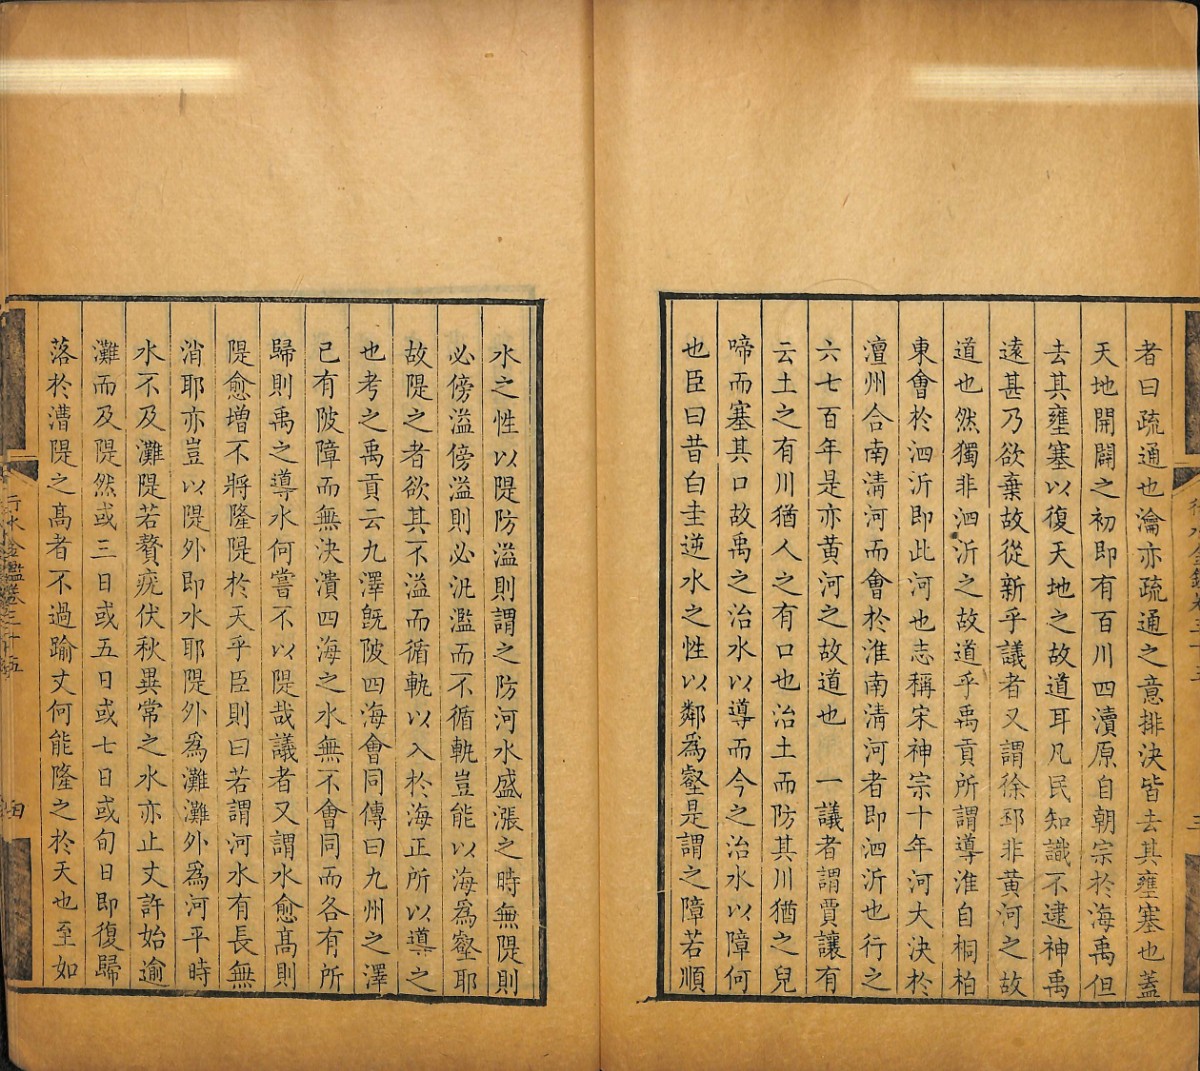 者曰疏通也瀹亦疏通之意排決皆去其壅塞也蓋
天地開闢之初即有百川四瀆原自朝宗於海禹但
去其壅塞以復天地之故道耳凡民知識不逮神禹
遠甚乃欲棄故從新乎議者又謂徐邳非黃河之故
道也然獨非泗沂之故道乎禹貢所謂導淮自桐柏
東會於泗沂即此河也志稱宋神宗十年河大決於
澶州合南清河而會於淮南清河者即泗沂也行之
六七百年是亦黃河之故道也　一議者謂賈讓有
云土之有川猶人之有口也治土而防其川猶之兒
啼而塞其口故禹之治水以導而今之治水以障何
也臣曰昔白圭逆水之性以鄰爲壑是謂之障若順
水之性以隄防溢則謂之防河水盛漲之時無隄則
必傍溢傍溢則必汎濫而不循軌豈能以海爲壑耶
故隄之者欲其不溢而循軌以入於海正所以導之
也考之禹貢云九澤旣陂四海會同傳曰九州之澤
已有陂障而無決潰四海之水無不會同而各有所
歸則禹之導水何嘗不以隄哉議者又謂水愈高則
隄愈增不將隆隄於天乎臣則曰若謂河水有長無
消耶亦豈以隄外即水耶隄外爲灘灘外爲河平時
水不及灘隄若贅疣伏秋異常之水亦止丈許始逾
灘而及隄然或三日或五日或七日或旬日即復歸
落於漕隄之高者不過踰丈何能隆之於天也至如
行水金鑑卷之三十五
四